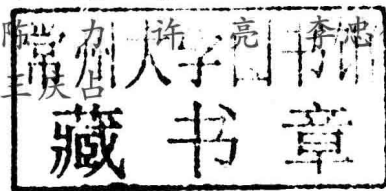 陈力 许亮 李忠
王庆占
常州大学图书馆
藏书章